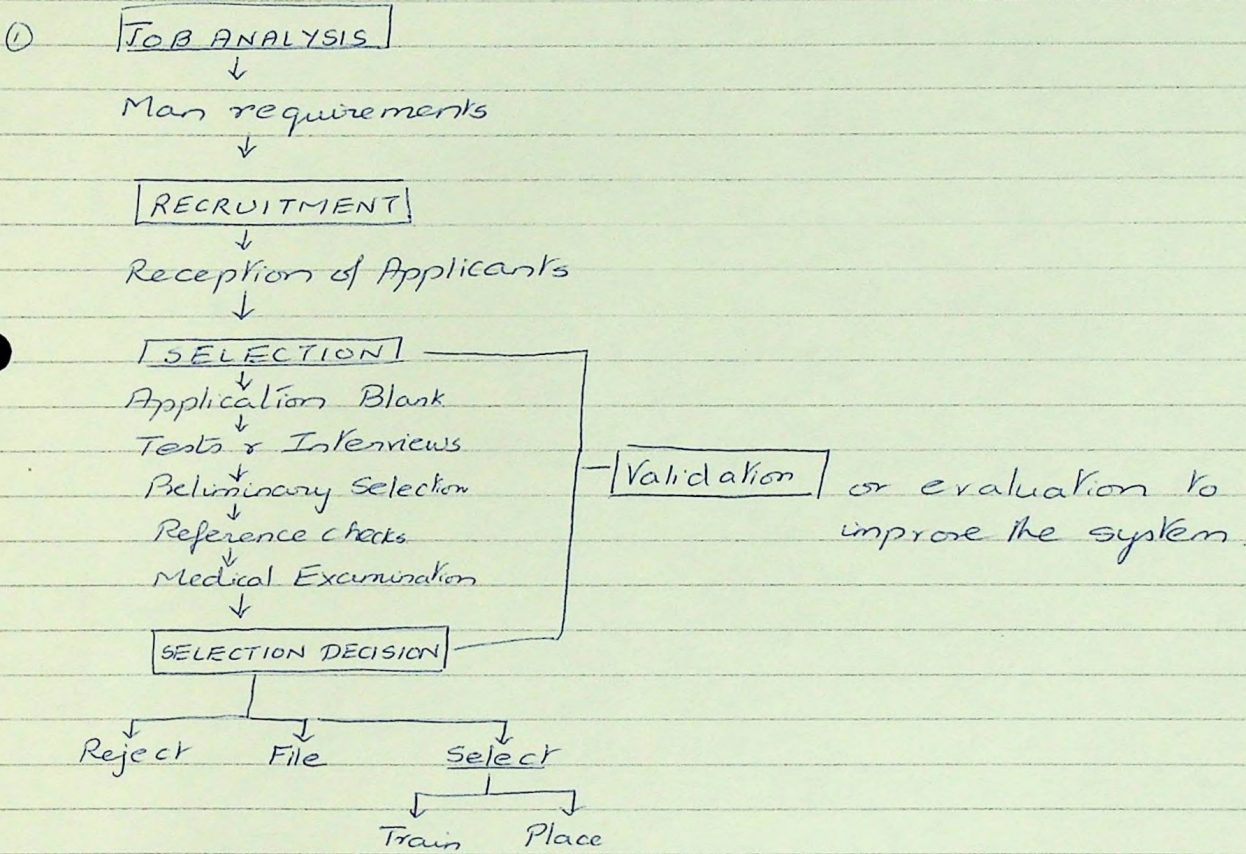 1
JOB ANALYSIS
Man requirements
RECRUITMENT
Reception of Applicants
SELECTION
Application Blank
Tests & Interviews
Preliminary Selection
Reference checks
Medical Examination
Validation or evaluation to
improve the system
SELECTION DECISION
Reject File Select
Train Place